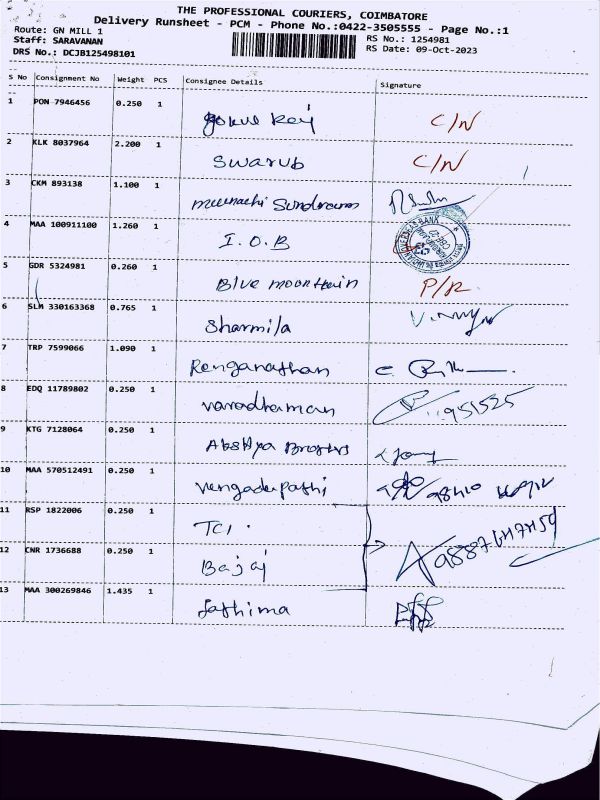 THE PROFESSIONAL COURIERS, COIMBATORE
Delivery Runsheet - PCM - Phone No.:0422-3505555 - Page No.:1
Route: GN MILL 1 RS No.: 1254981
Staff: SARAVANAN RS Date: 09-Oct-2023
DRS No.: DCJB125498101
S No Consignment No Weight PCS Consignee Details Signature
1 PON 7946456 0.250 1 C/N
2 KLK 8037964 2.200 1 Swarub C/N
3 CKM 893138 1.100 1 Meenachi Sundaram
4 MAA 100911100 1.260 1 I.O.B
5 GDR 5324981 0.260 1 Blue moontain P/R
6 SLM 330163368 0.765 1 Sharmila
7 TRP 7599066 1.090 1 Renganathan
8 EDQ 11789802 0.250 1 varadharaman
9 KTG 7128064 0.250 1
10 MAA 570512491 0.250 1
11 RSP 1822006 0.250 1 TCI.
12 CNR 1736688 0.250 1 Bajaj
13 MAA 300269846 1.435 1 fathima